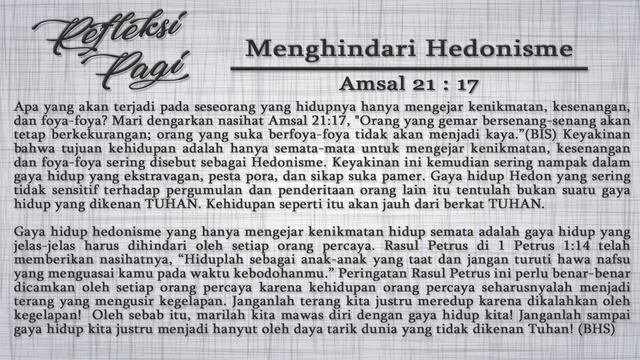 Refleksi
Pagi
Menghindari Hedonisme
Amsal 21 : 17
Apa yang akan terjadi pada seseorang yang hidupnya hanya mengejar kenikmatan, kesenangan,
dan foya-foya? Mari dengarkan nasihat Amsal 21:17, "Orang yang gemar bersenang-senang akan
tetap berkekurangan; orang yang suka berfoya-foya tidak akan menjadi kaya.”(BIS) Keyakinan
bahwa tujuan kehidupan adalah hanya semata-mata untuk mengejar kenikmatan, kesenangan
dan foya-foya sering disebut sebagai Hedonisme. Keyakinan ini kemudian sering nampak dalam
gaya hidup yang ekstravagan, pesta pora, dan sikap suka pamer. Gaya hidup Hedon yang sering
tidak sensitif terhadap pergumulan dan penderitaan orang lain itu tentulah bukan suatu gaya
hidup yang dikenan TUHAN. Kehidupan seperti itu akan jauh dari berkat TUHAN.
Gaya hidup hedonisme yang hanya mengejar kenikmatan hidup semata adalah gaya hidup yang
jelas-jelas harus dihindari oleh setiap orang percaya. Rasul Petrus di 1 Petrus 1:14 telah
memberikan nasihatnya, “Hiduplah sebagai anak-anak yang taat dan jangan turuti hawa nafsu
yang menguasai kamu pada waktu kebodohanmu.” Peringatan Rasul Petrus ini perlu benar-benar
dicamkan oleh setiap orang percaya karena kehidupan orang percaya seharusnyalah menjadi
terang yang mengusir kegelapan. Janganlah terang kita justru meredup karena dikalahkan oleh
kegelapan! Oleh sebab itu, marilah kita mawas diri dengan gaya hidup kita! Janganlah sampai
gaya hidup kita justru menjadi hanyut oleh daya tarik dunia yang tidak dikenan Tuhan! (BHS)